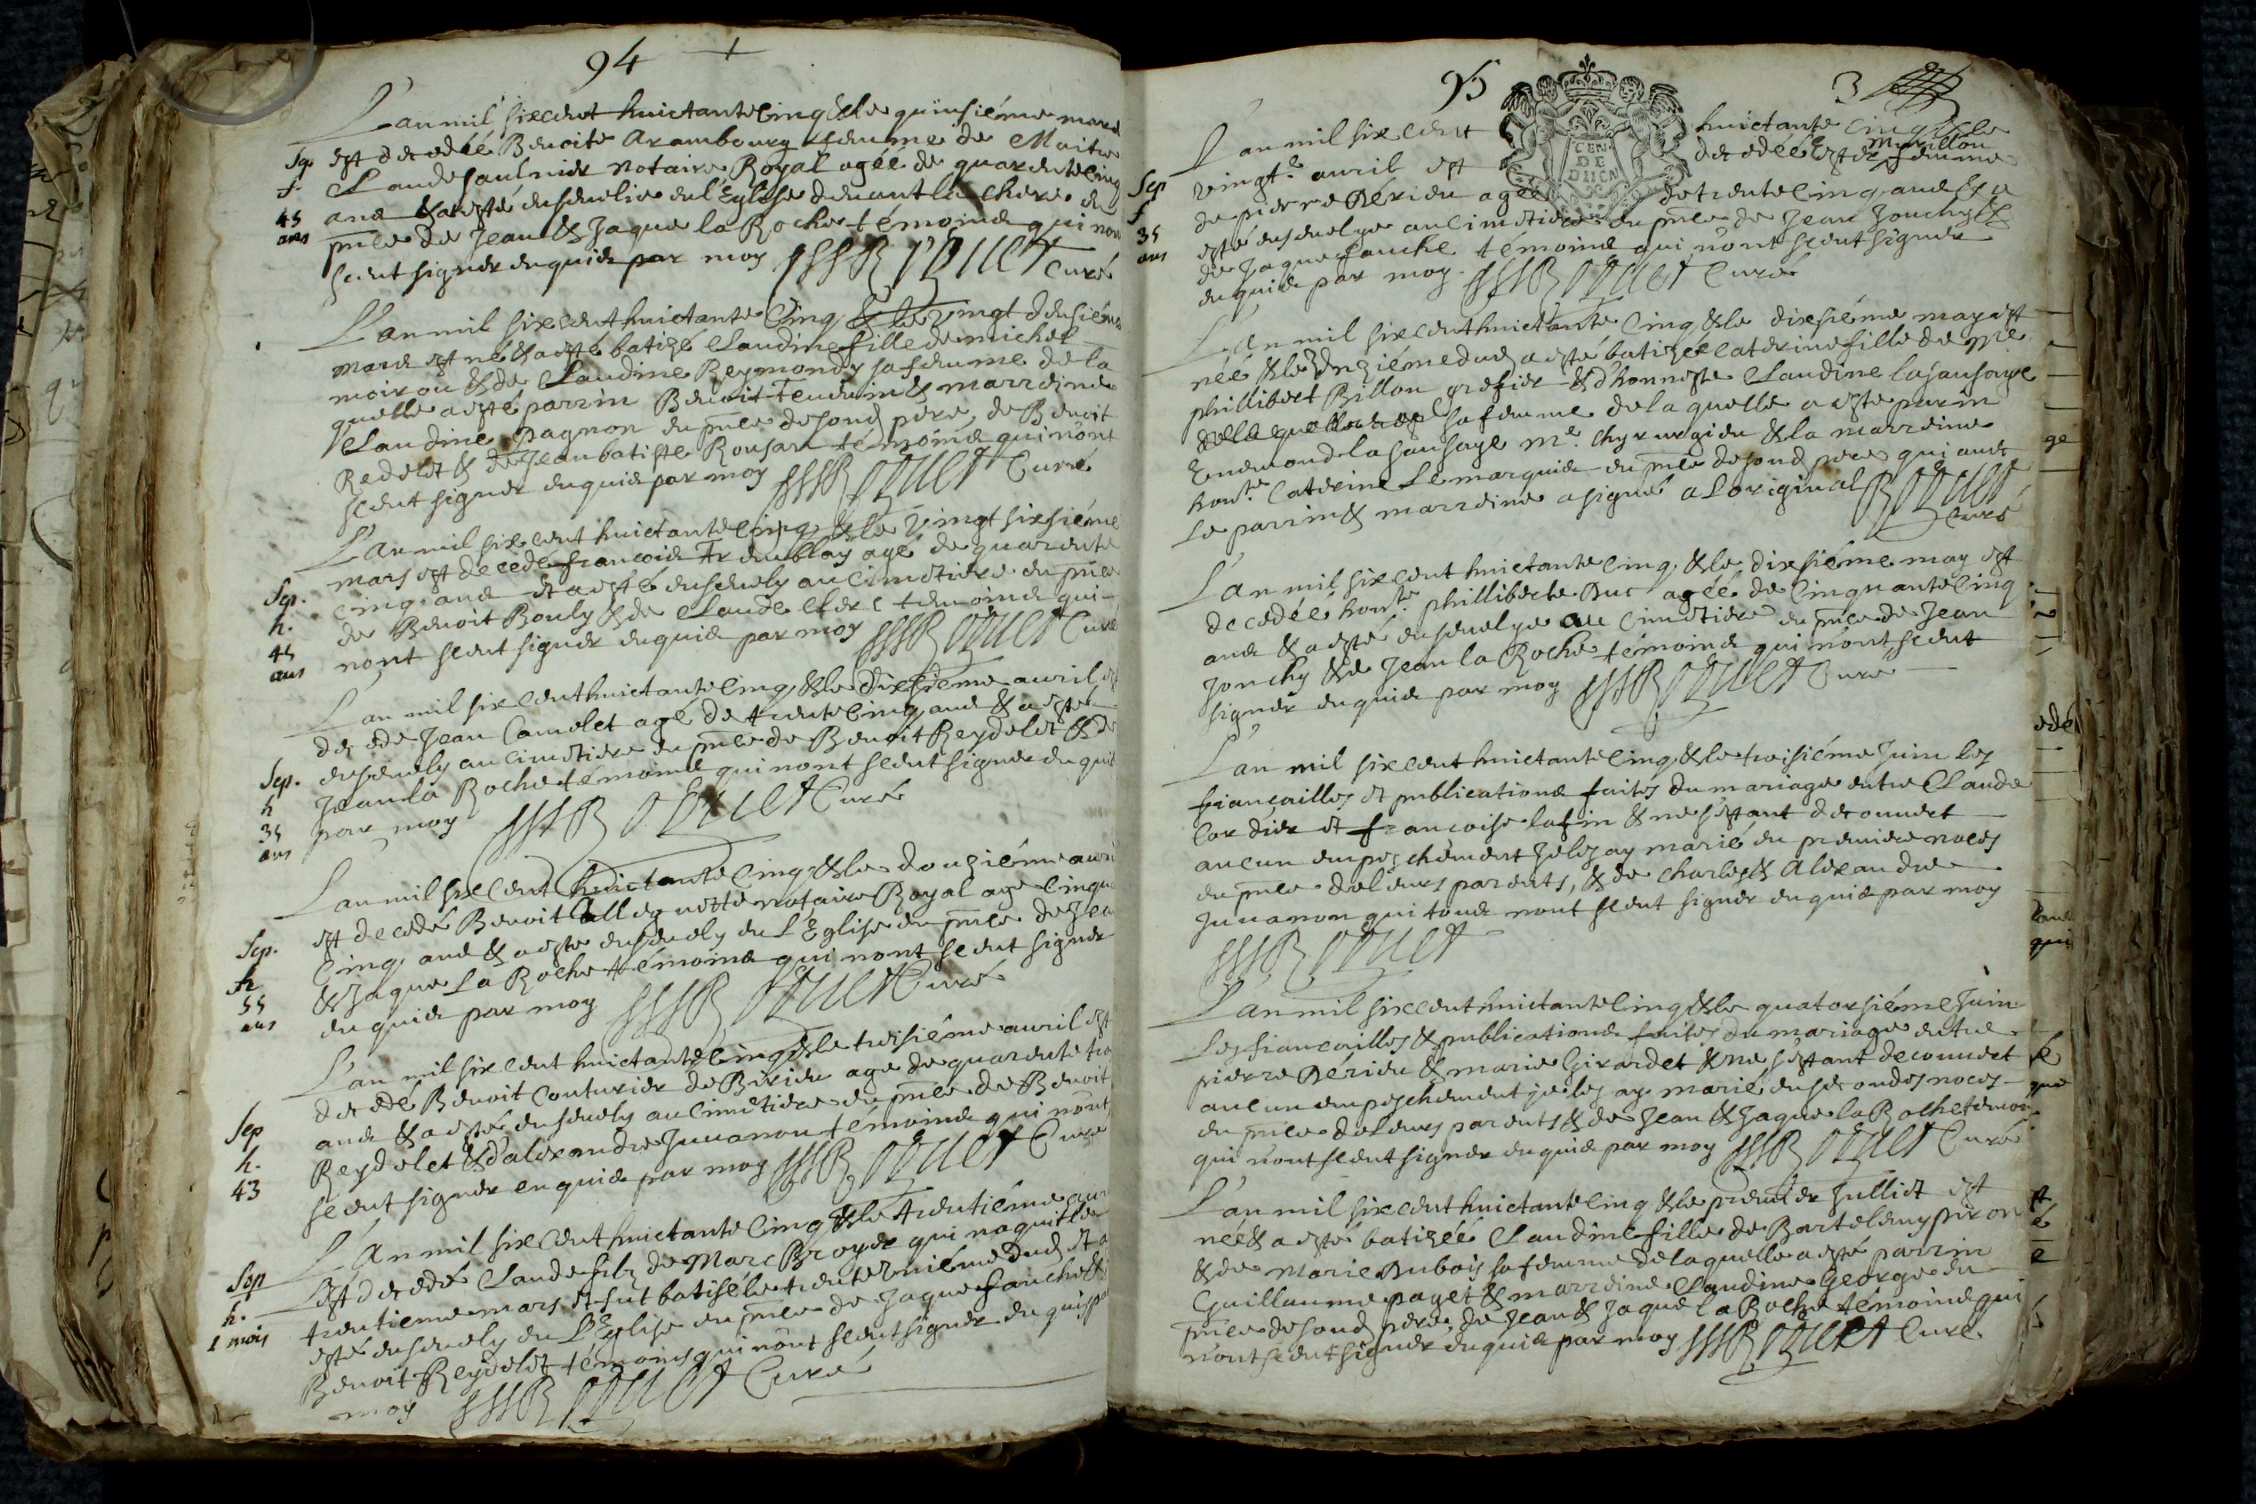 94
L'an mil six cent huictante cinq & le quinsiéme mars
Sep. est decedée Benoite Arambourg femme de Maitre
f. Claude saulnier notaire Royal agée de quarente cinq
45 ans & a esté ensevelie en l'Eglise devant la chere en
ans pnce de Jean & Jaque la Roche témoins qui nont
sceut signer enquis par moy Curé
L'an mil six cent huictante Cinq & le vingt deusiéme
mars est né & a esté batizé Claudine fille de michel
moirou & de Claudine Reymondy sa femme de la
quelle a esté parrin Benoit Tenerin & marreine
Claudine pagnon en pnce de soud pere, de Benoit
Redelet & de Jean batiste Rousan témoins qui nont
sceut signer enquis par moy Curé
L'an mil six cent huictante cinq & le vingt sixsiéme
mars est decedé francois agé de quarente
Sep. cinq ans et a esté ensevely au cimetiere en pnce
h. de Benoit Bouly & de Claude Clerc temoins qui
45 nont sceut signer enquis par moy Curé
ans
L'an mil six cent huictante cinq & le dixsiéme avril est
decede Jean Camelet agé de trente cinq ans & a esté
Sep. ensevely au cimetiere en pnce de Benoit Reydelet & de
h Jean la Roche témoins qui nont sceut signer enquis
35 par moy Curé
ans
L'an mil six Cent huictante cinq & le douziéme avril
est decedé Benoit notaire Royal agé Cinquante
Sep. cinq ans & a esté ensevely en L'Eglise en pnce de Jean
h & Jaque La Roche témoins qui nont sceut signer
55 enquis par moy Curé
ans
L'an mil six cent huictante cinq & le troisiéme avril est
decedé Benoit Couturier de Birieu agé de quarente trois
Sep ans & a esté ensevely au cimetiere en pnce de Benoit
h. Reydelet & d'alexandre Juuanon témoins qui nont
43 sceut signer enquis par moy Curé
L'An mil six Cent huictante cinq & le trentiéme avril
Sep Est decedé Claude filz de Marc Broyer qui naquit le
h. trentieme mars et fut batisé le trente uniéme dud et a
1 mois esté ensevely en L'Eglise en pnce de Jaque fauchet &
Benoit Reydelet témoins qui nont sceut signer enquis par
moy Curé
95 3
GEN DE DUCN
L'an mil six cent huictante cinq & le
Sep vingt.e avril est decedée Ester Murillon femme
f de pierre Dérieu agée de trente cinq ans & a
35 esté ensevelye au cimetiere en pnce de Jean Jonchy &
ans de Jaque fauche témoins qui nont sceut signer
enquis par moy. Curé
L'an mil six cent huictante cinq & le dixsiéme may est
née & le unziéme dud a esté batizée caterine fille de Me
phillibert Billon grefier & d'honneste Claudine lasausaye
sa femme de la quelle a esté parrin
Enemond lasausaye me. chyrurgien & la marreine
hon.te Caterine Lemarquis en pnce de soud pere qui avec
Le parrin & marreine a signé a Loriginal
Curé
L'an mil six cent huictante cinq, & le dixsiéme may est
decedée hon.te phillibecte Duc agée de cinquante cinq
ans & a esté ensevelye au cimetiere en pnce de Jean
Jonchy & de Jean la Roche témoins qui nont sceut
signer enquis par moy Curé
L'an mil six cent huictante cinq & le troisiéme Juin les
fiançailles et publications faites du mariage entre Claude
Cordier et francoise lafin & ne sestant decouvert
aucun empeschement Je les ay marié en premiere noces
en pnce de leurs parents, & de charles & Alexandre
Juuanon qui tous nont sceut signer enquis par moy
L'an mil six cent huictante cinq & le quatorsiéme Juin
Les fiancailles & publications faites du mariage entre
pierre Dérieu & marie Girardet & ne sestant decouvert
aucun empeschement je les ay marié en secondes noces
en pnce de Leurs parents & de Jean & Jaque la Roche temoins
qui nont sceut signer enquis par moy Curé
L'an mil six cent huictante cinq & le premier Julliet est
née & a esté batizée Claudine fille de Bartelemy piron
& de Marie Dubois sa femme de laquelle a esté parrin
Guillaume payet & marreine Claudine George en
pnce de soud pere, de Jean & Jaque la Roche témoins qui
nont sceut signer enquis par moy Curé